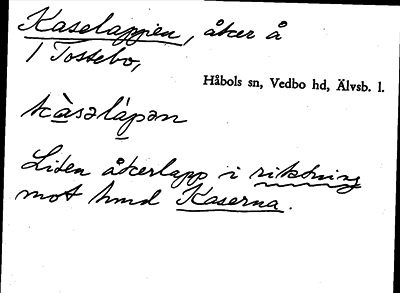 Kaselappen, åker å
1 Tossebo,
Håbols sn, Vedbo hd, Älvsb. l.
kàsəlápən
Liten åkerlapp i riktning
mot hmd Kaserna.